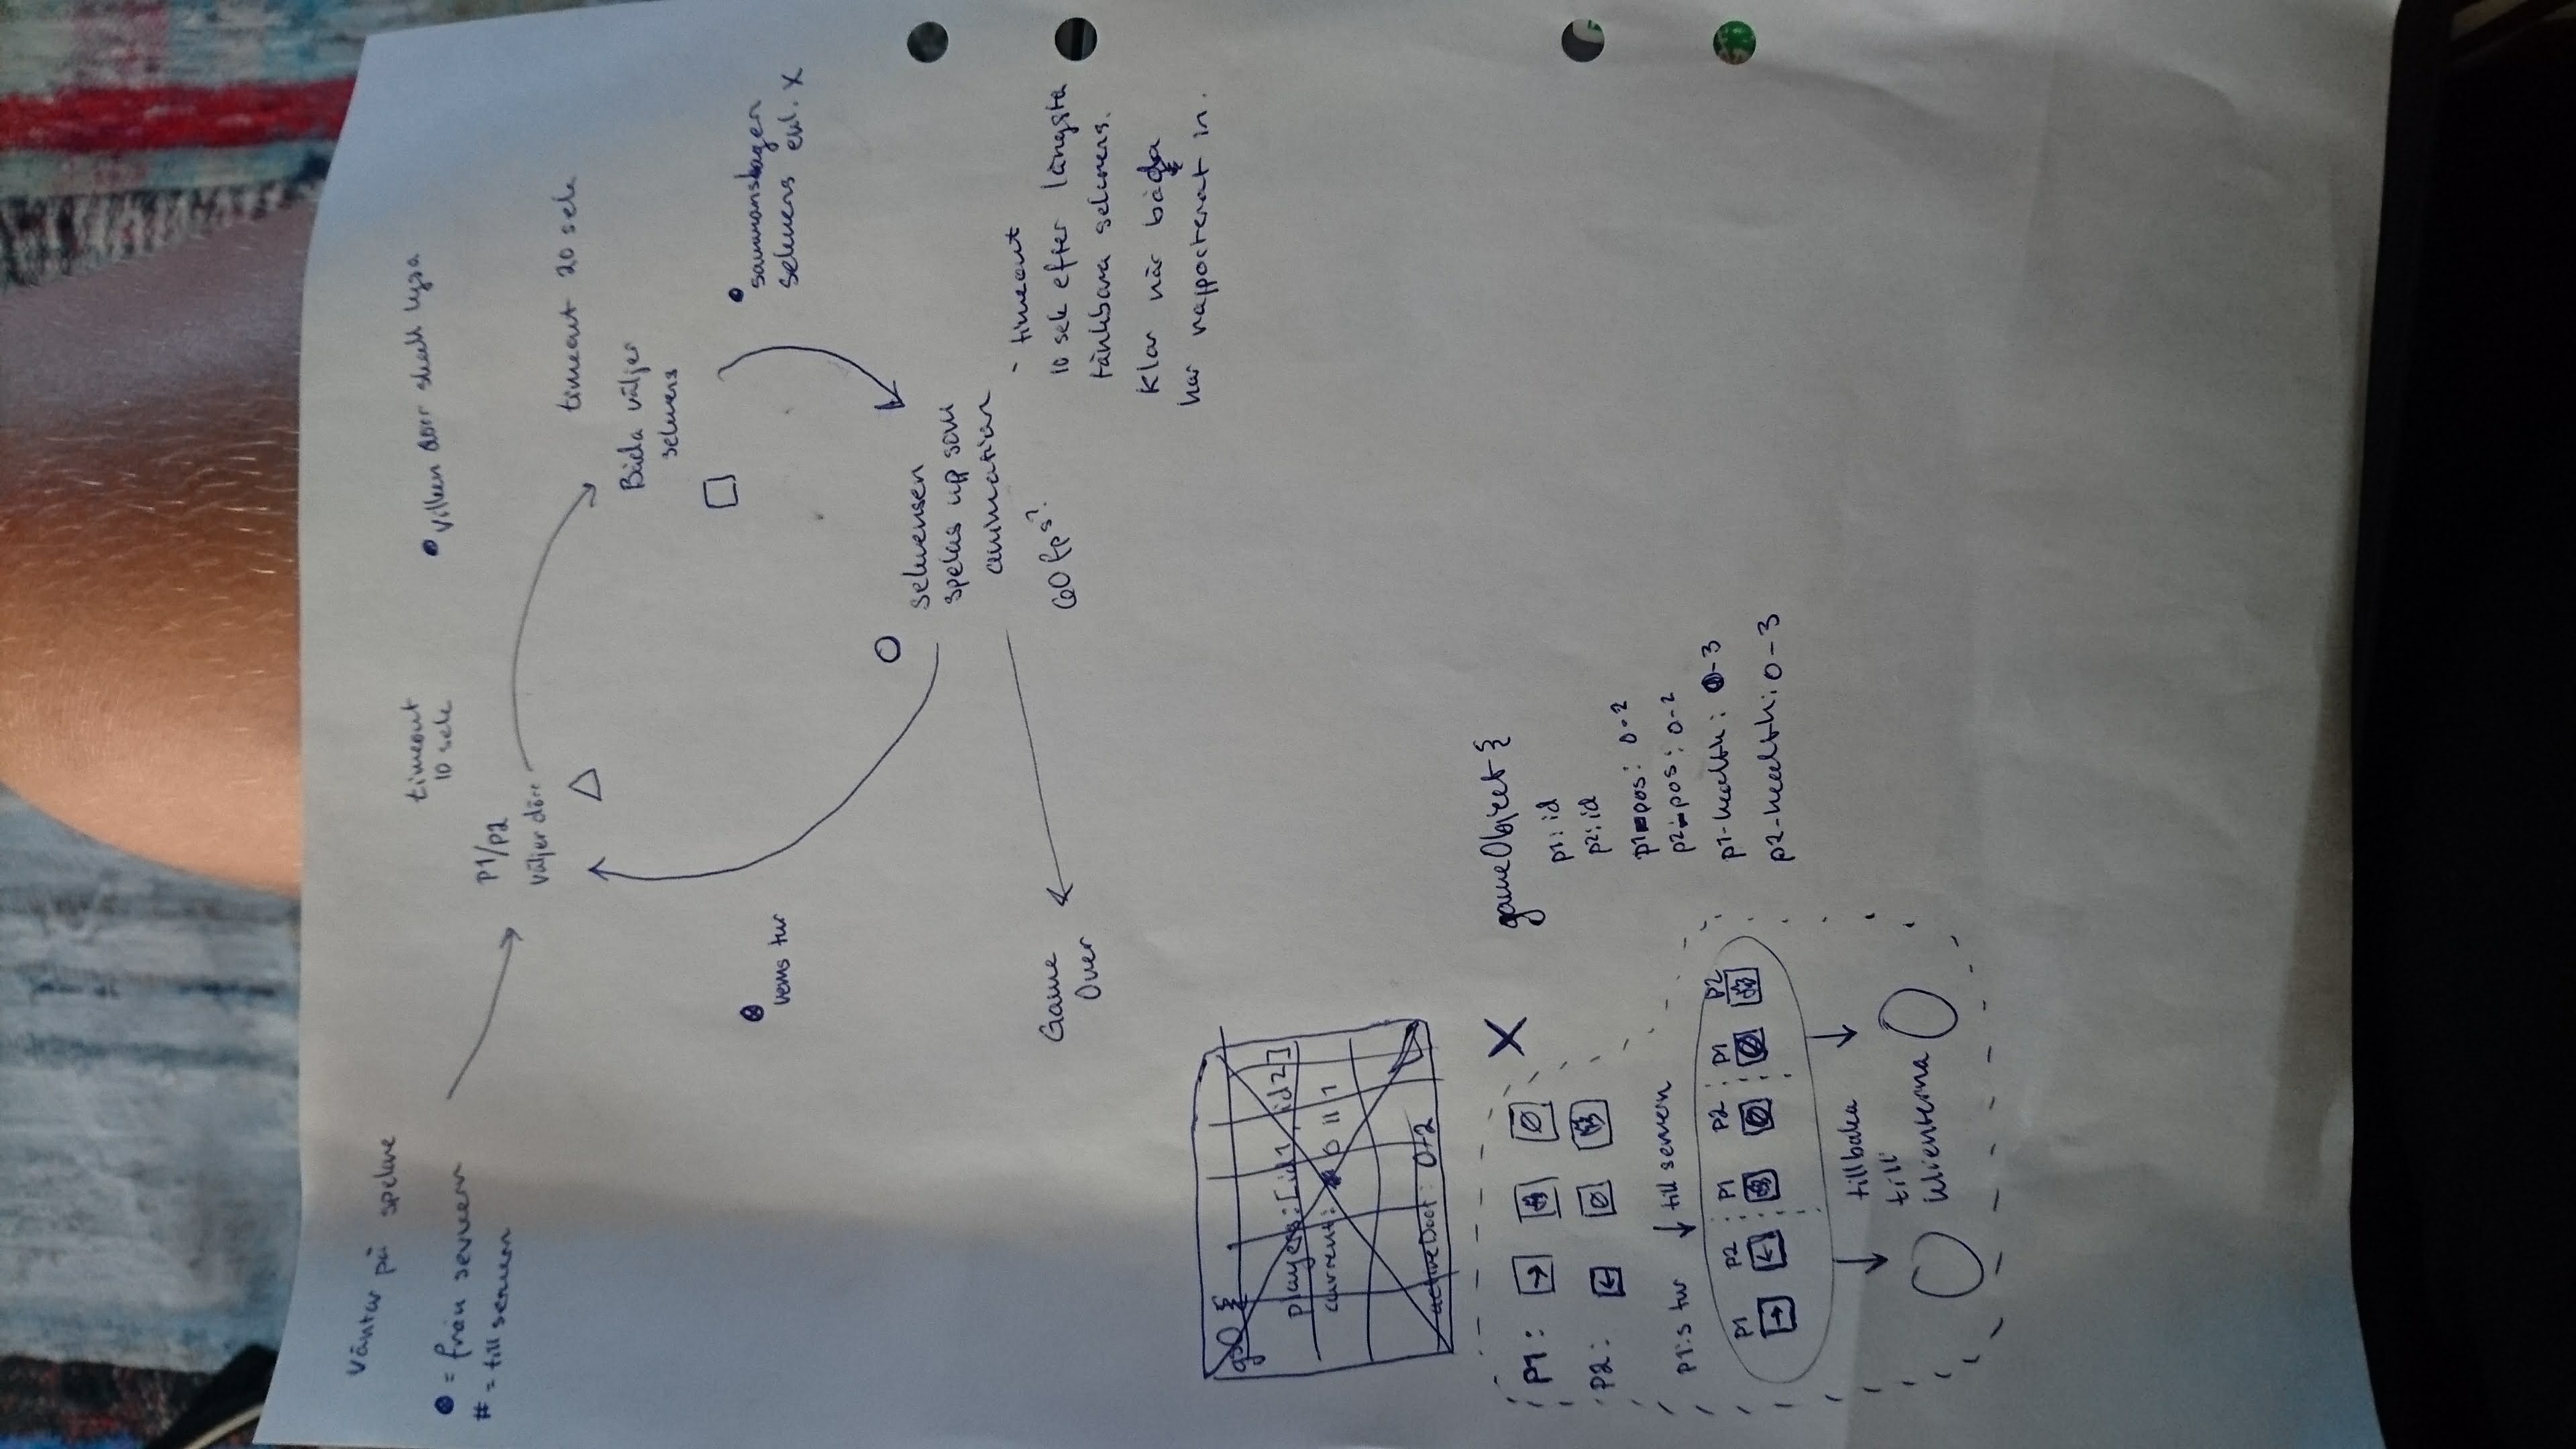 Väntar på spelare
● = från servern
# = till servern
timeout
10 sek
P1/P2
väljer dörr
● vilken dörr skall lysa
timeout 20 sek
Båda väljer
sekvens
● sammanslagen
sekvens enl. X
vems tur
sekvensen
spelas upp som
animation
60 fps?
Game
Over
- timeout
10 sek efter längsta
tänkbara sekvens.
Klar när båda
har rapporterat in.
gsO {
players: [id1, id2]
current: 0 || 1
activeDoor: 0-2
X
P1: → ∅
P2: ← ∅
P1:s tur ↓ till servern
P1 P2 P1 P2 P1 P2
→ ← ∅ ∅
tillbaka
till
klienterna
gameObject {
p1: id
p2: id
p1-pos: 0-2
p2-pos: 0-2
p1-health: 0-3
p2-health: 0-3